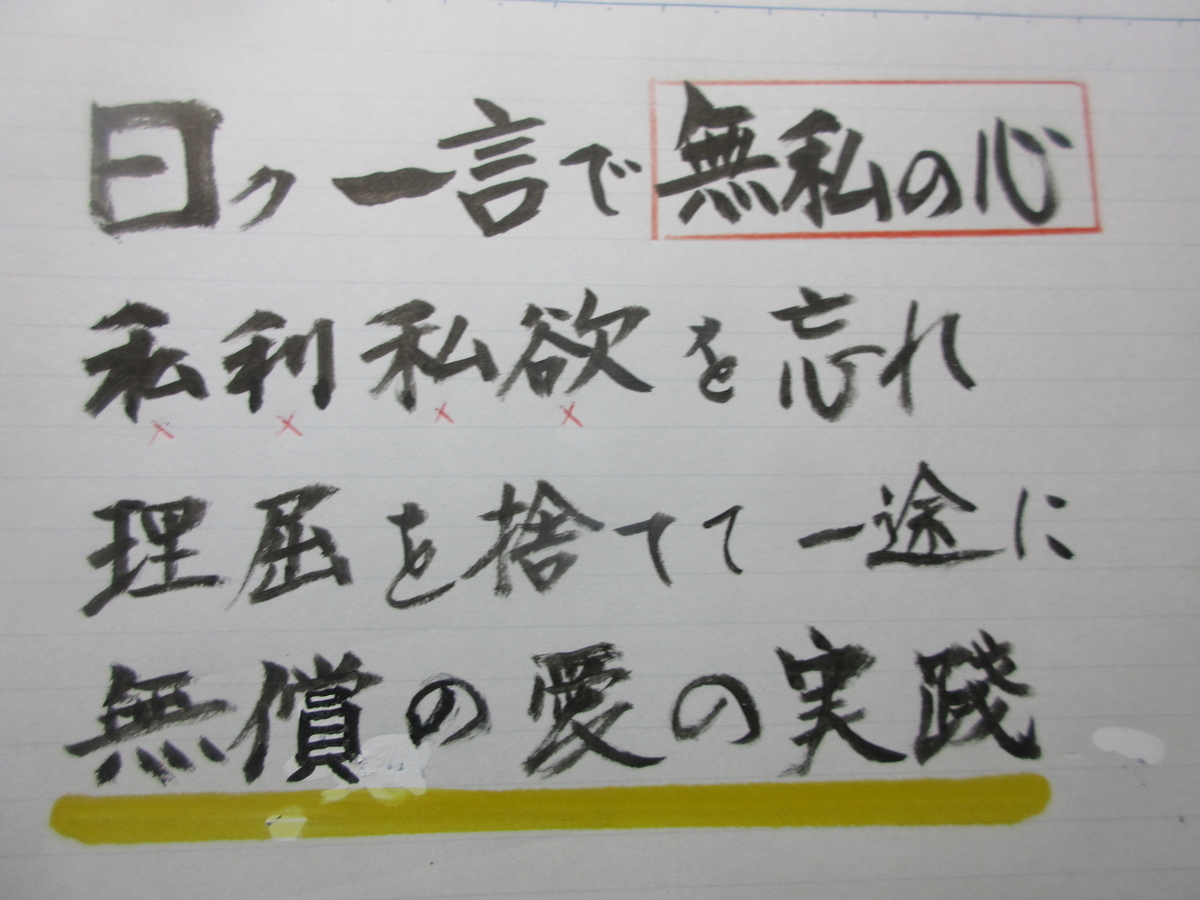 曰ク一言で無私の心
私利私欲を忘れ
理屈を捨てて一途に
無償の愛の実践